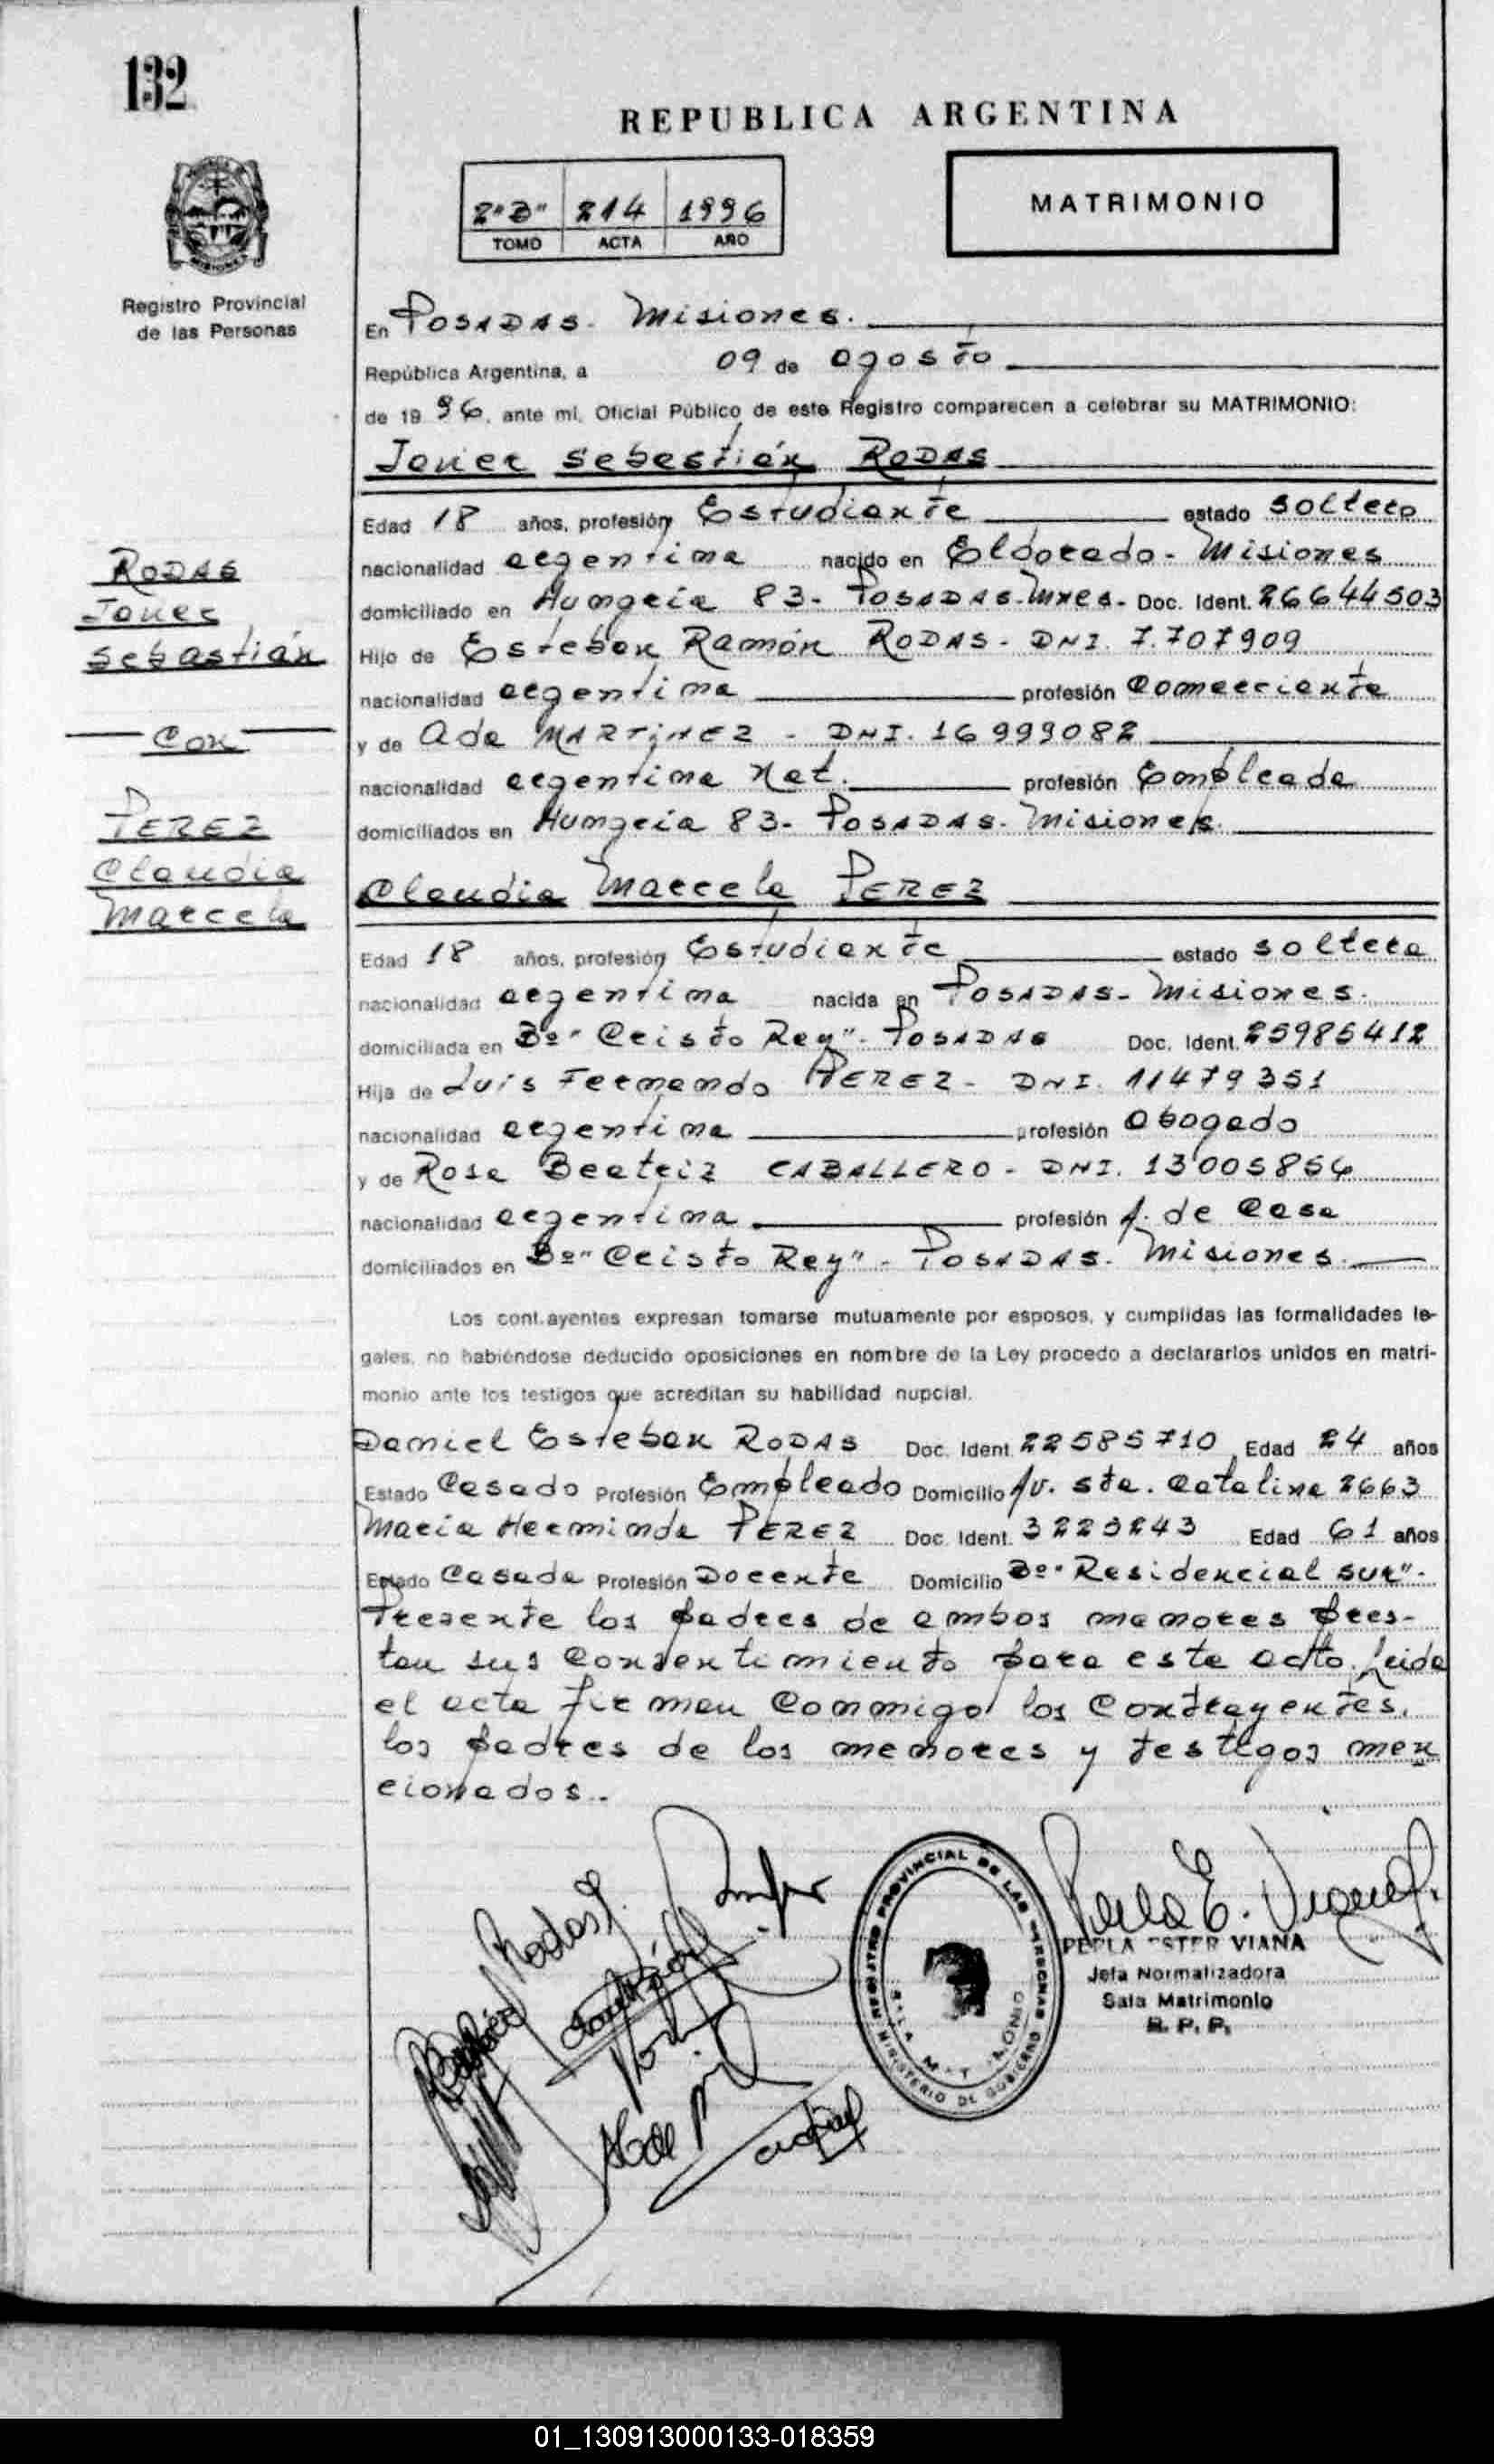 132
REPUBLICA ARGENTINA
2"B" 214 1996
TOMO ACTA AÑO
MATRIMONIO
Registro Provincial
de las Personas
En POSADAS - Misiones.
República Argentina, a 09 de agosto
de 19 96, ante mi, Oficial Público de este Registro comparecen a celebrar su MATRIMONIO:
Javier Sebastián RODAS
Edad 18 años, profesión Estudiante estado soltero
nacionalidad argentina nacido en Eldorado - Misiones
domiciliado en Hungría 83 - POSADAS - Mnes - Doc. Ident. 26644503
Hijo de Esteban Ramón RODAS - DNI. 7.707909
nacionalidad argentina profesión Comerciante
y de Ada MARTINEZ - DNI. 16999082
nacionalidad argentina Nat. profesión Empleada
domiciliados en Hungría 83 - POSADAS - Misiones
RODAS
Javier
Sebastián
con
PEREZ
Claudia
Marcela
Claudia Marcela PEREZ
Edad 18 años, profesión Estudiante estado soltera
nacionalidad argentina nacida en POSADAS - Misiones.
domiciliada en Bº "Cristo Rey" - POSADAS Doc. Ident. 25985412
Hija de Luis Fernando PEREZ - DNI. 11479351
nacionalidad argentina profesión abogado
y de Rosa Beatriz CABALLERO - DNI. 13005856
nacionalidad argentina profesión A. de Casa
domiciliados en Bº "Cristo Rey" - POSADAS - Misiones.
Los contrayentes expresan tomarse mutuamente por esposos, y cumplidas las formalidades le-
gales, no habiéndose deducido oposiciones en nombre de la Ley procedo a declararlos unidos en matri-
monio ante los testigos que acreditan su habilidad nupcial.
Daniel Esteban RODAS Doc. Ident. 22585710 Edad 24 años
Estado Casado Profesión Empleado Domicilio Av. Sta. Catalina 2663
María Herminda PEREZ Doc. Ident. 3223243 Edad 61 años
Estado Casada Profesión Docente Domicilio Bº "Residencial Sur" -
Presente los padres de ambos menores pres-
tan sus consentimiento para este acto. Leida
el acta firman conmigo los contrayentes,
los padres de los menores y testigos men
cionados.-
Rodas
REGISTRO PROVINCIAL DE LAS PERSONAS
MINISTERIO DE GOBIERNO
SALA MATRIMONIO
Perla E. Viana
PERLA ESTER VIANA
Jefa Normalizadora
Sala Matrimonio
R. P. P.
01_130913000133-018359